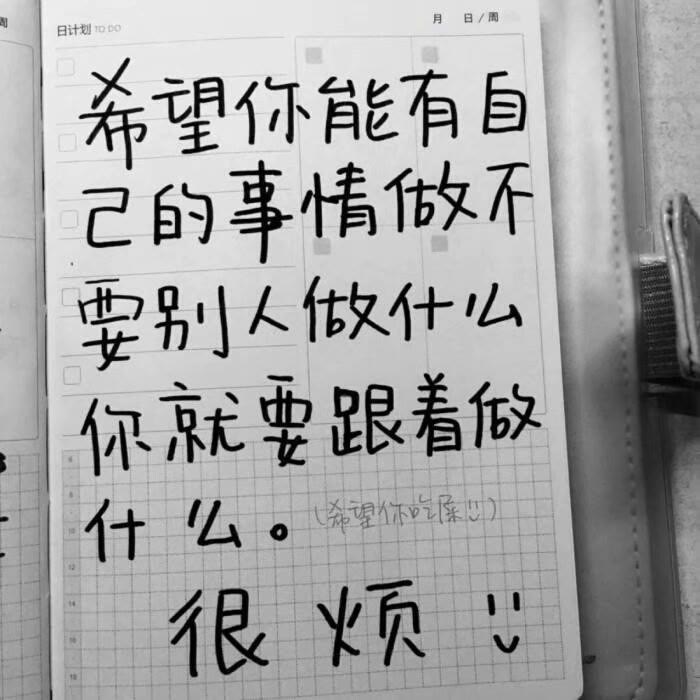 日计划 TO DO 月 日/周
希望你能有自
己的事情做不
要别人做什么
你就要跟着做
什么。(希望你吃屎!!)
很烦
6
8
10
12
14
16
18